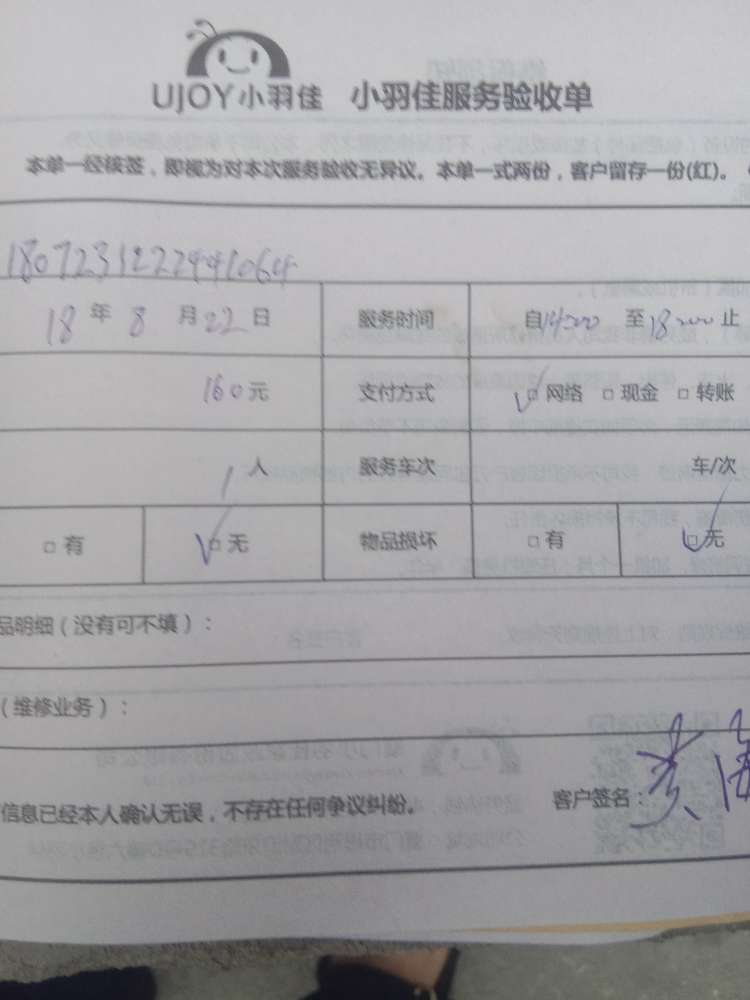 UJOY小羽佳 小羽佳服务验收单
本单一经核签，即视为对本次服务验收无异议。本单一式两份，客户留存一份(红)。
1807231222441064
18年8月22日 服务时间 自14:00 至18:00止
160元 支付方式 ☑网络 □现金 □转账
1人 服务车次 车/次
□有 ☑无 物品损坏 □有 ☑无
品明细（没有可不填）：
（维修业务）：
信息已经本人确认无误，不存在任何争议纠纷。 客户签名：